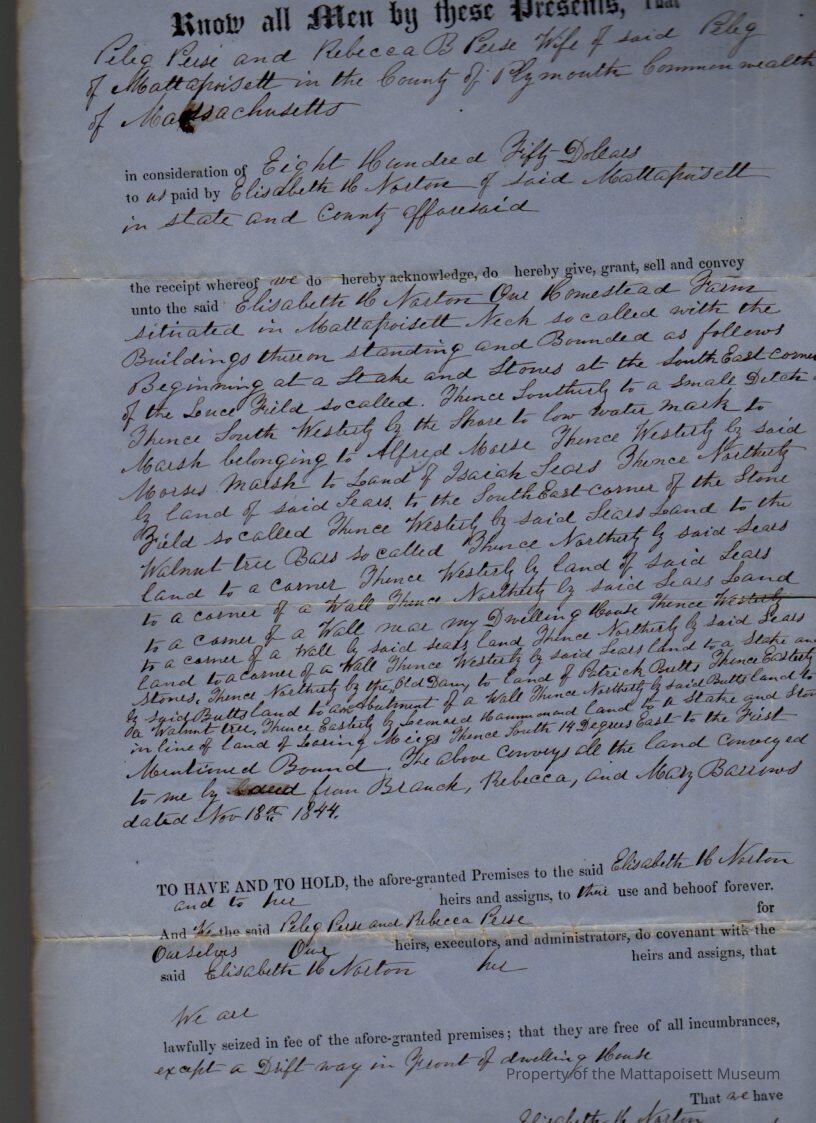 Know all Men by these Presents, That
Peleg Perse and Rebecca B Perse Wife of said Peleg
of Mattapoisett in the County of Plymouth Commonwealth
of Massachusetts
in consideration of Eight Hundred Fifty Dollars
to us paid by Elisabeth H Norton of said Mattapoisett
in state and County afforesaid
the receipt whereof we do hereby acknowledge, do hereby give, grant, sell and convey
unto the said Elisabeth H Norton Our Homestead Farm
situated in Mattapoisett Neck so called with the
Buildings thereon standing and Bounded as follows
Beginning at a Stake and Stones at the South East corner
of the Luce Field so called. Thence Southerly to a Small Detch
Thence South Westerly by the Shore to low water mark to
Marsh belonging to Alfred Morse Thence Westerly by said
Morses Marsh to Land of Isaiah Sears Thence Northerly
by land of said Sears. to the South East corner of the Stone
Field so called Thence Westerly by said Sears Land to the
Walnut tree Bars so called Thence Northerly by said Sears
land to a corner Thence Westerly by land of said Sears
to a corner of a Wall Thence Northerly by said Sears Land
to a corner of a Wall near my Dwelling House Thence Westerly
to a corner of a Wall by said sears land Thence Northerly by said Sears
land to a corner of a Wall Thence Westerly by said Sears land to a Stake and
Stones, Thence Northerly by the Old Dam to land of Patrick Butts Thence Easterly
by said Butts land to an Abutment of a Wall Thence Northerly by said Butts land to
a Walnut tree, Thence Easterly by Leonard Hammond land to a Stake and Ston
in line of land of Loring Meigs Thence South 14 Degrees East to the First
Mentioned Bound. The above conveys all the land conveyed
to me by deed from Branch, Rebecca, and Mary Barrows
dated Nov 18th 1844.
TO HAVE AND TO HOLD, the afore-granted Premises to the said Elisabeth H Norton
and to her heirs and assigns, to their use and behoof forever.
And We the said Peleg Perse and Rebecca Perse for
Ourselves Our heirs, executors, and administrators, do covenant with the
said Elisabeth H Norton her heirs and assigns, that
We are
lawfully seized in fee of the afore-granted premises; that they are free of all incumbrances,
except a Drift way in Front of dwelling House
Property of the Mattapoisett Museum
That we have
Elisabeth H Norton